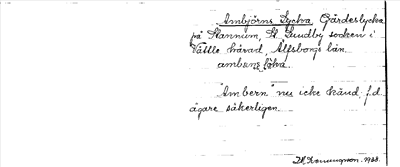 Ambjörns Lycka, Gärdeslycka
på Stannum, St. Lundby socken i
Vättle härad, Älfsborgs län.
ambans löka.
"Ambern" nu icke känd, f.d.
ägare säkerligen.
1933.